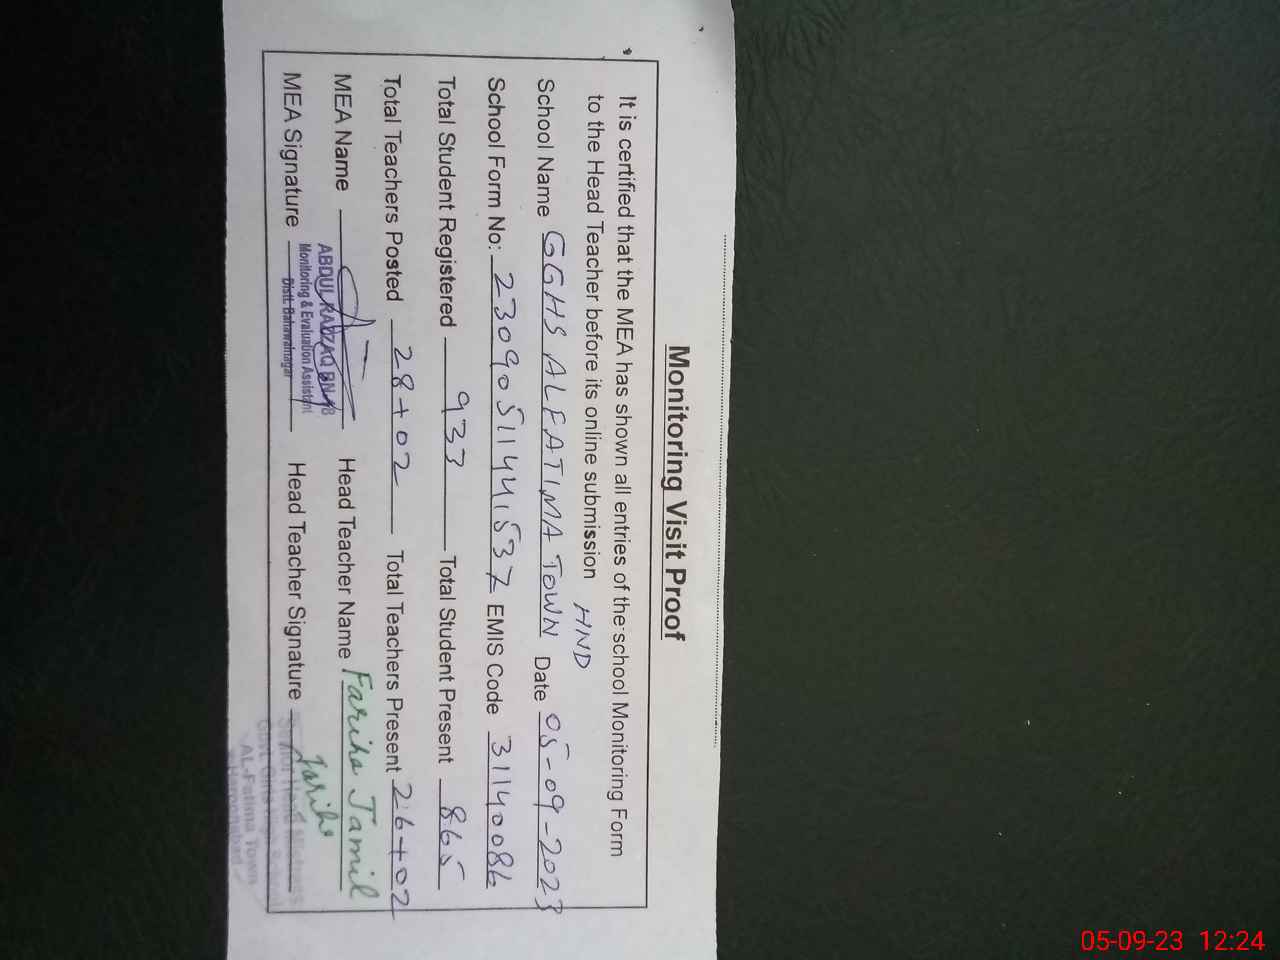 Monitoring Visit Proof
It is certified that the MEA has shown all entries of the school Monitoring Form
to the Head Teacher before its online submission
HND
School Name GGHS ALFATIMA TOWN Date 05-09-2023
School Form No: 23090511441537 EMIS Code 31140086
Total Student Registered 933 Total Student Present 865
Total Teachers Posted 28+02 Total Teachers Present 26+02
MEA Name Head Teacher Name Fariha Jamil
ABDUL RAZZAQ
Monitoring & Evaluation Assistant
Distt. Bahawalnagar
MEA Signature Head Teacher Signature Fariha
AL-Fatima Town
05-09-23 12:24